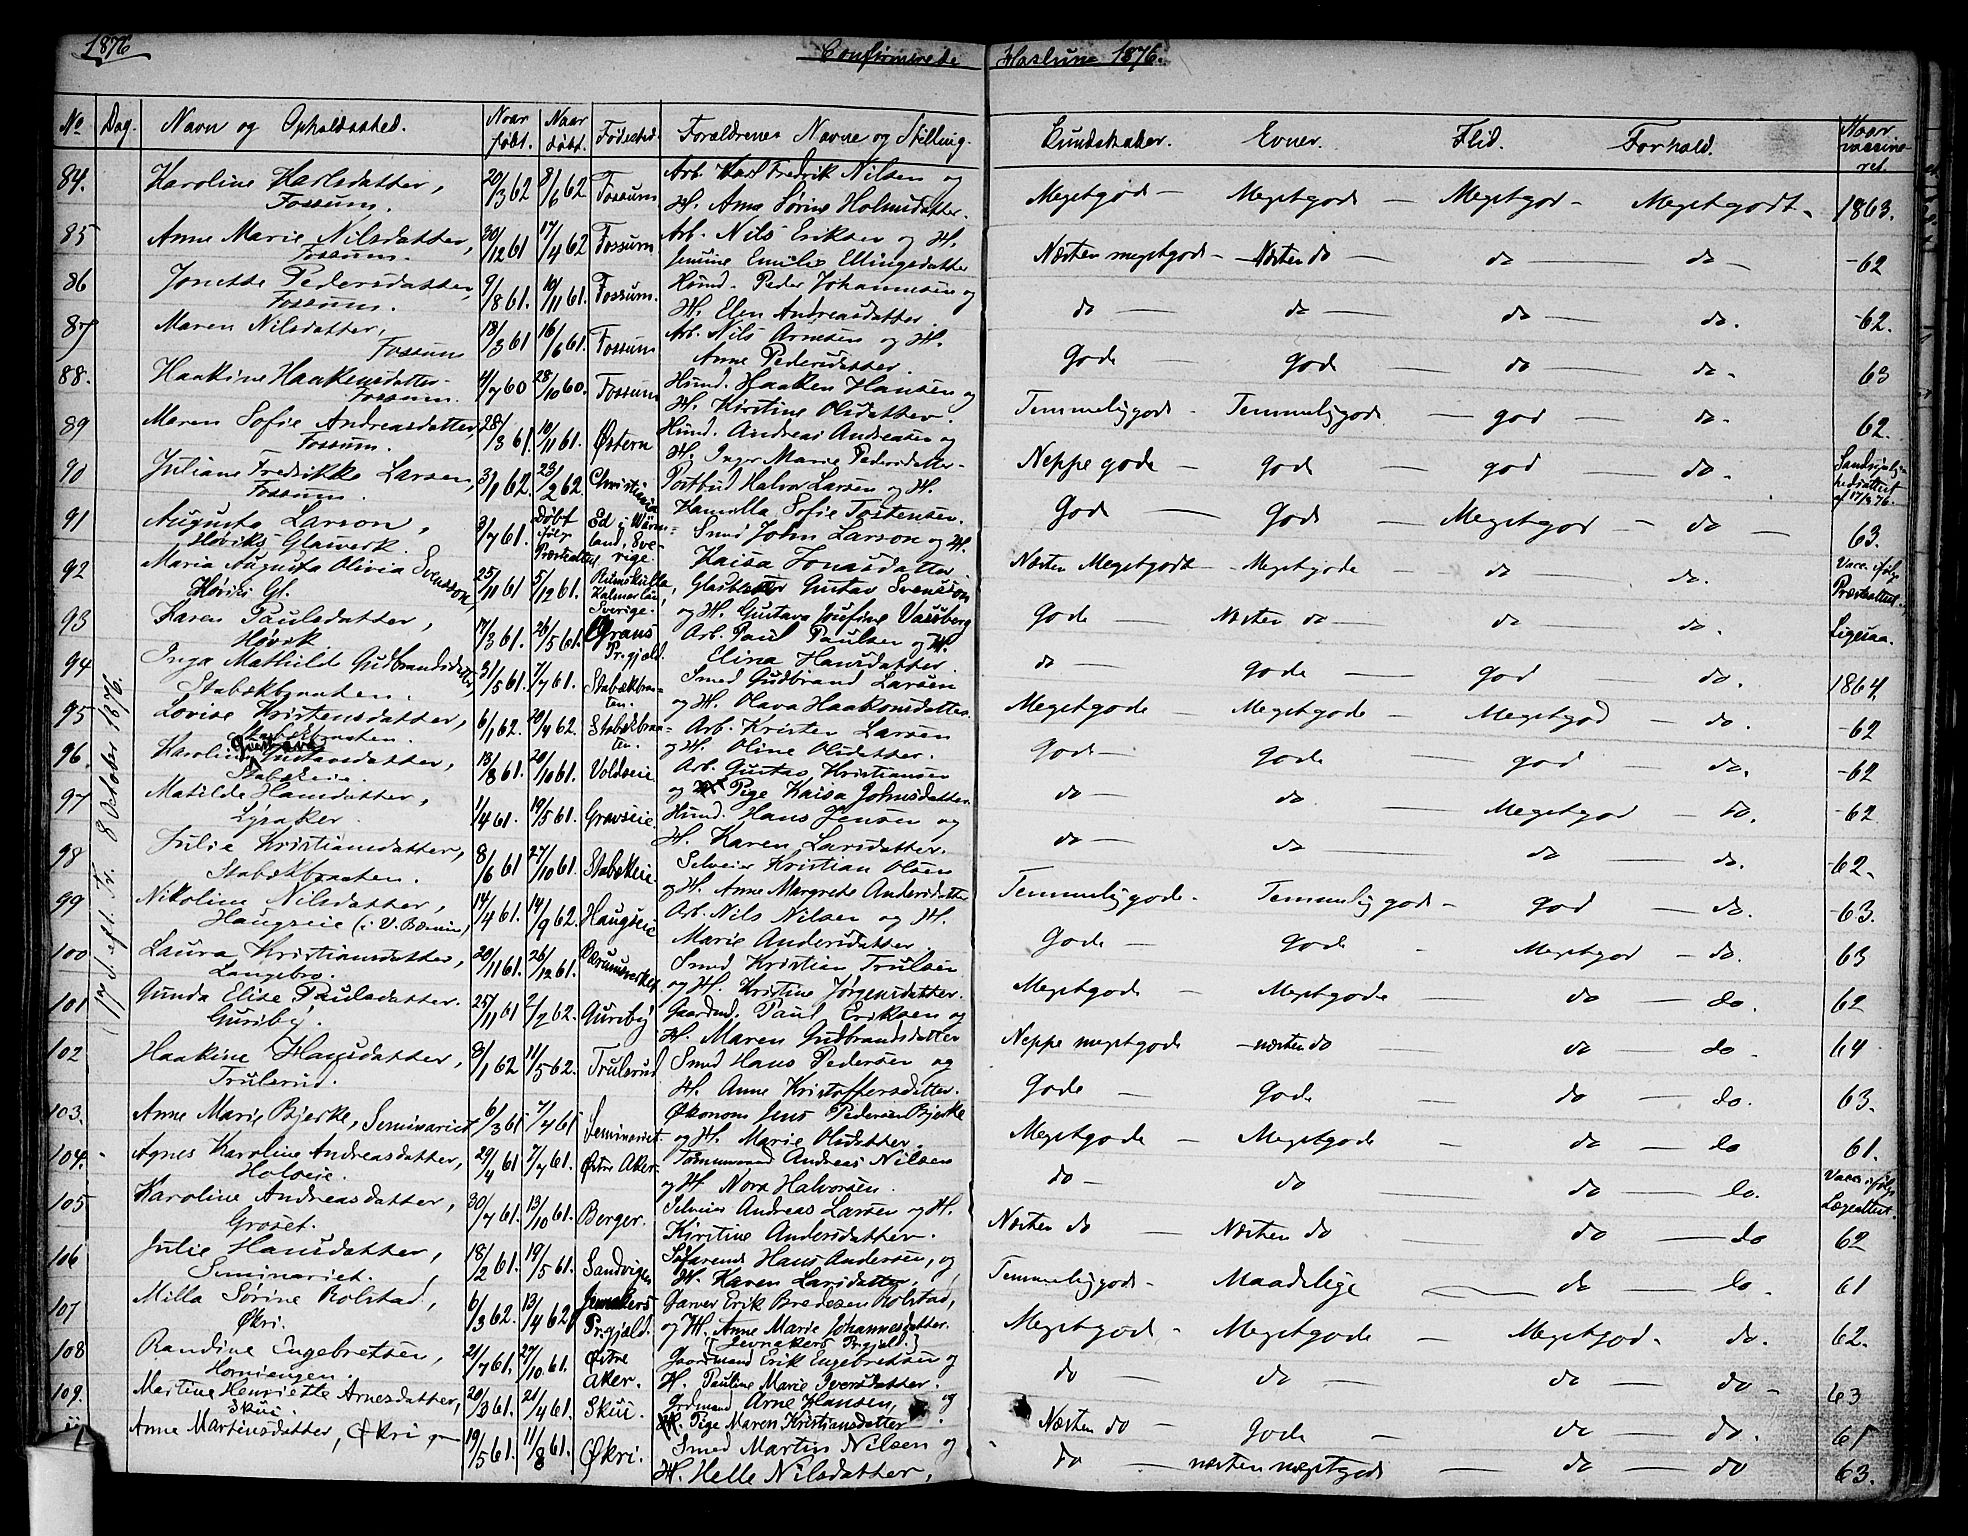 1876
Confirmerede Haslum 1876.
No Dag. Navn og Opholdssted. Naar født. Naar døbt. Fødested. Forældrenes Navne og Stilling. Kundskaber. Evner. Flid. Forhold. Naar vaccineret.
17 Sept. Fr. 8 October 1876.
84. Karoline Karlsdatter, 20/3 62 8/6 62 Fossum Arb. Karl Fredrik Nilsen og Megetgod — Megetgode — Megetgod — Megetgodt. 1863.
Fossum. H. Anna Sørine Holmsdatter.
85 Anne Marie Nilsdatter, 30/12 61 17/4 62 Fossum Arb. Nils Eriksen og H. Næsten megetgode — Næsten do — do — do — -62
Fossum. Jensine Emilie Ellingsdatter
86 Jonette Pedersdatter, 9/8 61. 10/11 61. Fossum. Husmd. Peder Johannesen og do — do — do — do. -62.
Fossum. H. Elen Andreasdatter
87 Maren Nilsdatter, 18/3 61 16/6 61. Fossum Arb. Nils Arnesen og H. Gode — god — do — do. 63
Fossum Anne Pedersdatter.
88. Haakine Haakensdatter 4/7 60 28/10 60. Fossum Husmd. Haaken Hansen og Temmeliggode — Temmeliggode — god — do. 62.
Fossum. H. Kirstine Olsdatter.
89 Maren Sofie Andreasdatter, 28/3 61 10/11 61. Østern Husmd. Andreas Andreasen og Neppe gode — god — god — do.
Fossum. H. Inger Marie Pedersdatter.
90 Juliane Fredrikke Larsen, 3/1 62. 23/2 62. Christiania Postbud Halvor Larsen og H. Gode — Gode — Megetgod — do —
Fossum. Kamilla Sofie Tostensen. af 17/9 76.
91 Augusta Larson, 3/7 61. Døbt ifølge Præsteattest Ed i Wärmland, Sverige Smed John Larson og H. 63.
Høviks Glasverk. Kaisa Jonasdatter
92 Maria Augusta Olivia Svensson, 25/11 61 5/12 61. Kalmar län, Sverige. Glasblæser Gustav Svensson Næsten Megetgodt — Megetgode — do — do. Vacc. ifølge Præsteattest.
Høviks Gl. og H. Gustava Josefine Vassberg
93 Karen Paulsdatter, 17/3 61. 26/5 61. Grans Pr.gjæld. Arb. Paul Paulsen og H. Gode — Næsten do — do — do. Ligesaa.
Høvik Elina Hansdatter.
94 Inga Mathilde Gudbrandsdatter, 31/5 61. 7/7 61. Stabækbraaten. Smed Gudbrand Larsen do — gode — god — do. 1864.
Stabækbraaten. og H. Olava Haakonsdatter
95 Lovise Kristensdatter, 6/1 62. 20/4 62. Stabækbraaten. Arb. Kristen Larsen Megetgode — Megetgode — Megetgod — do. -62
Stabækbraaten. og H. Oline Olsdatter.
96. Karoline Gustava Gustavsdatter, 18/8 61. 20/10 61. Voldseie Arb. Gustav Kristiansen Gode — gode — god — do. -62
Stabækeie. og Pige Kaisa Johnsdatter
97 Matilde Hansdatter, 1/4 61. 19/5 61. Gravseie. Husmd. Hans Jensen og do — do — Megetgod — do. -62
Lysaker. H. Karen Larsdatter.
98 Julie Kristiansdatter, 8/6 61 27/10 61. Stabækeie. Selveier Kristian Olsen do — do — do — do. -62.
Stabækbraaten. og H. Anne Margrete Andersdatter
99 Nikoline Nilsdatter, 14/4 61. 14/9 62. Haugseie Arb. Nils Nilsen og H. Temmeliggode. Temmeliggode — god — do. -63.
Haugseie (i V. Bærum) Marie Andersdatter.
100 Laura Kristiansdatter, 20/11 61. 26/12 61. Bærumsverket Smed Kristian Trulsen Gode — gode — Megetgod — do. 63
Langebro. og H. Kristine Jørgensdatter.
101 Gunda Elise Paulsdatter. 25/11 61 2/2 62. Guriby Gaardmd. Paul Eriksen og Megetgode — Megetgode — do — do. 62
Guriby. H. Maren Gudbrandsdatter
102 Haakine Hansdatter, 8/1 62 11/5 62. Trulerud Smed Hans Pedersen og Neppe megetgode — næsten do — do — do. 64
Trulerud. H. Anne Kristoffersdatter. Gode — Gode — do — do. 63.
103. Anne Marie Bjerke, Seminariet 6/3 61 7/4 61 Seminariet. Økonom Jens Pedersen Bjerke Megetgode — Megetgode — do — do 61.
og H. Marie Olsdatter.
104. Agnes Karoline Andreasdatter, 29/4 61 7/7 61. Østre Aker. Tømmermand Andreas Nilsen do — do — do — do. Vacc. ifølge Lægeattest.
Holseie. og H. Nora Halvorsen.
105 Karoline Andreasdatter, 30/7 61. 13/10 61. Berger. Selveier Andreas Larsen og H. Næsten do — Næsten do — do — do 62
Groset. Kirstine Andersdatter.
106 Julie Hansdatter, 18/2 61. 19/5 61. Sandvigen Søfarende Hans Andersen, og Temmeliggode — Maadelige — do — do. 61
Seminariet. H. Karen Larsdatter.
107 Milla Sørine Rolstad, 6/3 62. 13/4 62 Jevnakers Pr.gjæld. Garver Erik Bredesen Rolstad, Megetgode — Megetgode — Megetgod — do. 62.
Økri. og H. Anne Marie Johannesdatter (Jevnakers Prgjæld.)
108 Randine Engebretsen, 21/7 61. 27/10 61. Østre Aker. Gaardmand Erik Engebretsen og do — do — do — do — 63
Horniengen. H. Pauline Marie Iversdatter.
109. Martine Henriette Arnesdatter, 20/3 61. 21/4 61. Skui. Grdmand Arne Hansen, og Næsten do — Gode — do — do. 61
Skui. Pige Maren Kristiansdatter
Anne Martinsdatter, Økri 19/5 61. 11/8 61. Økri. Smed Martin Nilsen og do — næsten megetgode — do — do 63.
H. Helle Nilsdatter,